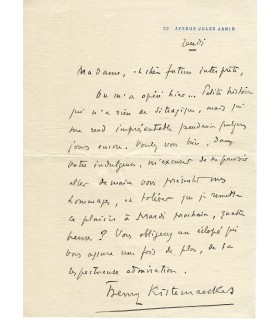 23 AVENUE JULES JANIN
Lundi
Madame, et chère future interprète,
On m'a opéré hier... Petite histoire
qui n'a rien de tragique, mais qui
me rend imprésentable pendant quelques
jours encore. Voulez-vous bien, dans
votre indulgence, m'excuser de ne pouvoir
aller demain vous présenter mes
hommages, et tolérer que je remette
ce plaisir à mardi prochain, quatre
heures ? Vous obligerez un éclopé qui
vous assure une fois de plus, de sa
respectueuse admiration.
Henry Kistemaeckers